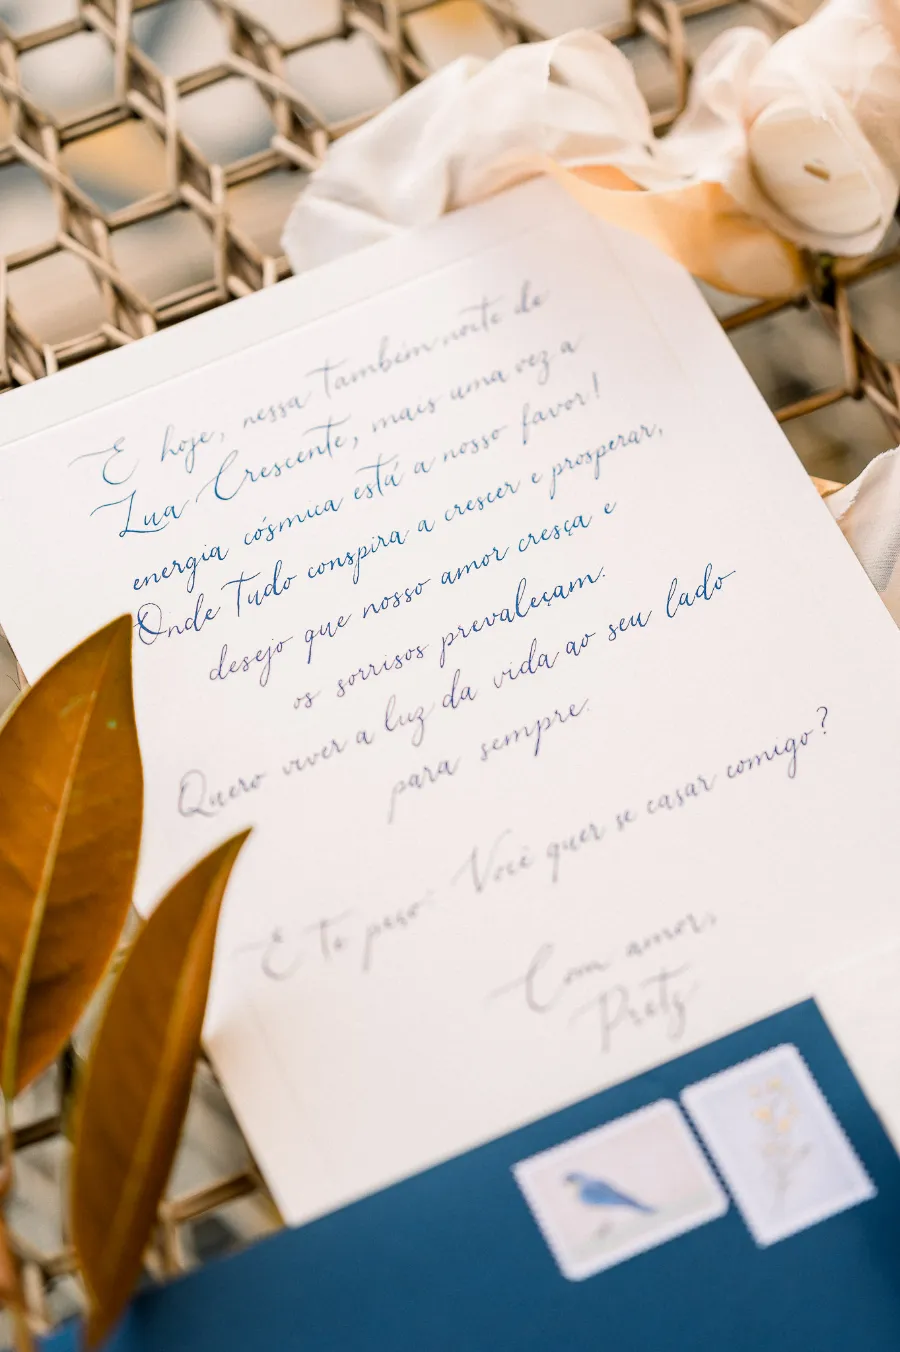 E hoje, nessa também noite de
Lua Crescente, mais uma vez a
energia cósmica está a nosso favor!
Onde Tudo conspira a crescer e prosperar,
desejo que nosso amor cresça e
os sorrisos prevaleçam.
Quero viver a luz da vida ao seu lado
para sempre.
E te peço Você quer se casar comigo?
Com amor,